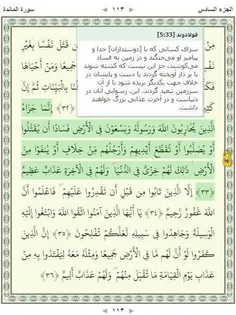 الجزء السادس ١١٣ سورة المائدة
فولادوند [5:33]
سزای کسانی که با [دوستداران] خدا و
پیامبر او می‌جنگند و در زمین به فساد
می‌کوشند، جز این نیست که کشته شوند
یا بر دار آویخته گردند یا دست و پایشان در
خلاف جهت یکدیگر بریده شود یا از آن
سرزمین تبعید گردند. این، رسوایی آنان در
دنیاست و در آخرت عذابی بزرگ خواهند
داشت.
قَتَلَ نَفْسًا بِغَيْرِ
جَمِيعًا وَمَنْ أَحْيَاهَا
بِالْبَيِّنَاتِ ثُمَّ إِنَّ
﴿٣٢﴾ إِنَّمَا جَزَاءُ
الَّذِينَ يُحَارِبُونَ اللَّهَ وَرَسُولَهُ وَيَسْعَوْنَ فِي الْأَرْضِ فَسَادًا أَن يُقَتَّلُوا
أَوْ يُصَلَّبُوا أَوْ تُقَطَّعَ أَيْدِيهِمْ وَأَرْجُلُهُم مِّنْ خِلَافٍ أَوْ يُنفَوْا مِنَ
الْأَرْضِ ذَٰلِكَ لَهُمْ خِزْيٌ فِي الدُّنْيَا وَلَهُمْ فِي الْآخِرَةِ عَذَابٌ عَظِيمٌ
﴿٣٣﴾ إِلَّا الَّذِينَ تَابُوا مِن قَبْلِ أَن تَقْدِرُوا عَلَيْهِمْ فَاعْلَمُوا أَنَّ
اللَّهَ غَفُورٌ رَّحِيمٌ ﴿٣٤﴾ يَا أَيُّهَا الَّذِينَ آمَنُوا اتَّقُوا اللَّهَ وَابْتَغُوا إِلَيْهِ
الْوَسِيلَةَ وَجَاهِدُوا فِي سَبِيلِهِ لَعَلَّكُمْ تُفْلِحُونَ ﴿٣٥﴾ إِنَّ الَّذِينَ
كَفَرُوا لَوْ أَنَّ لَهُم مَّا فِي الْأَرْضِ جَمِيعًا وَمِثْلَهُ مَعَهُ لِيَفْتَدُوا بِهِ مِنْ
عَذَابِ يَوْمِ الْقِيَامَةِ مَا تُقُبِّلَ مِنْهُمْ وَلَهُمْ عَذَابٌ أَلِيمٌ ﴿٣٦﴾
١١٣